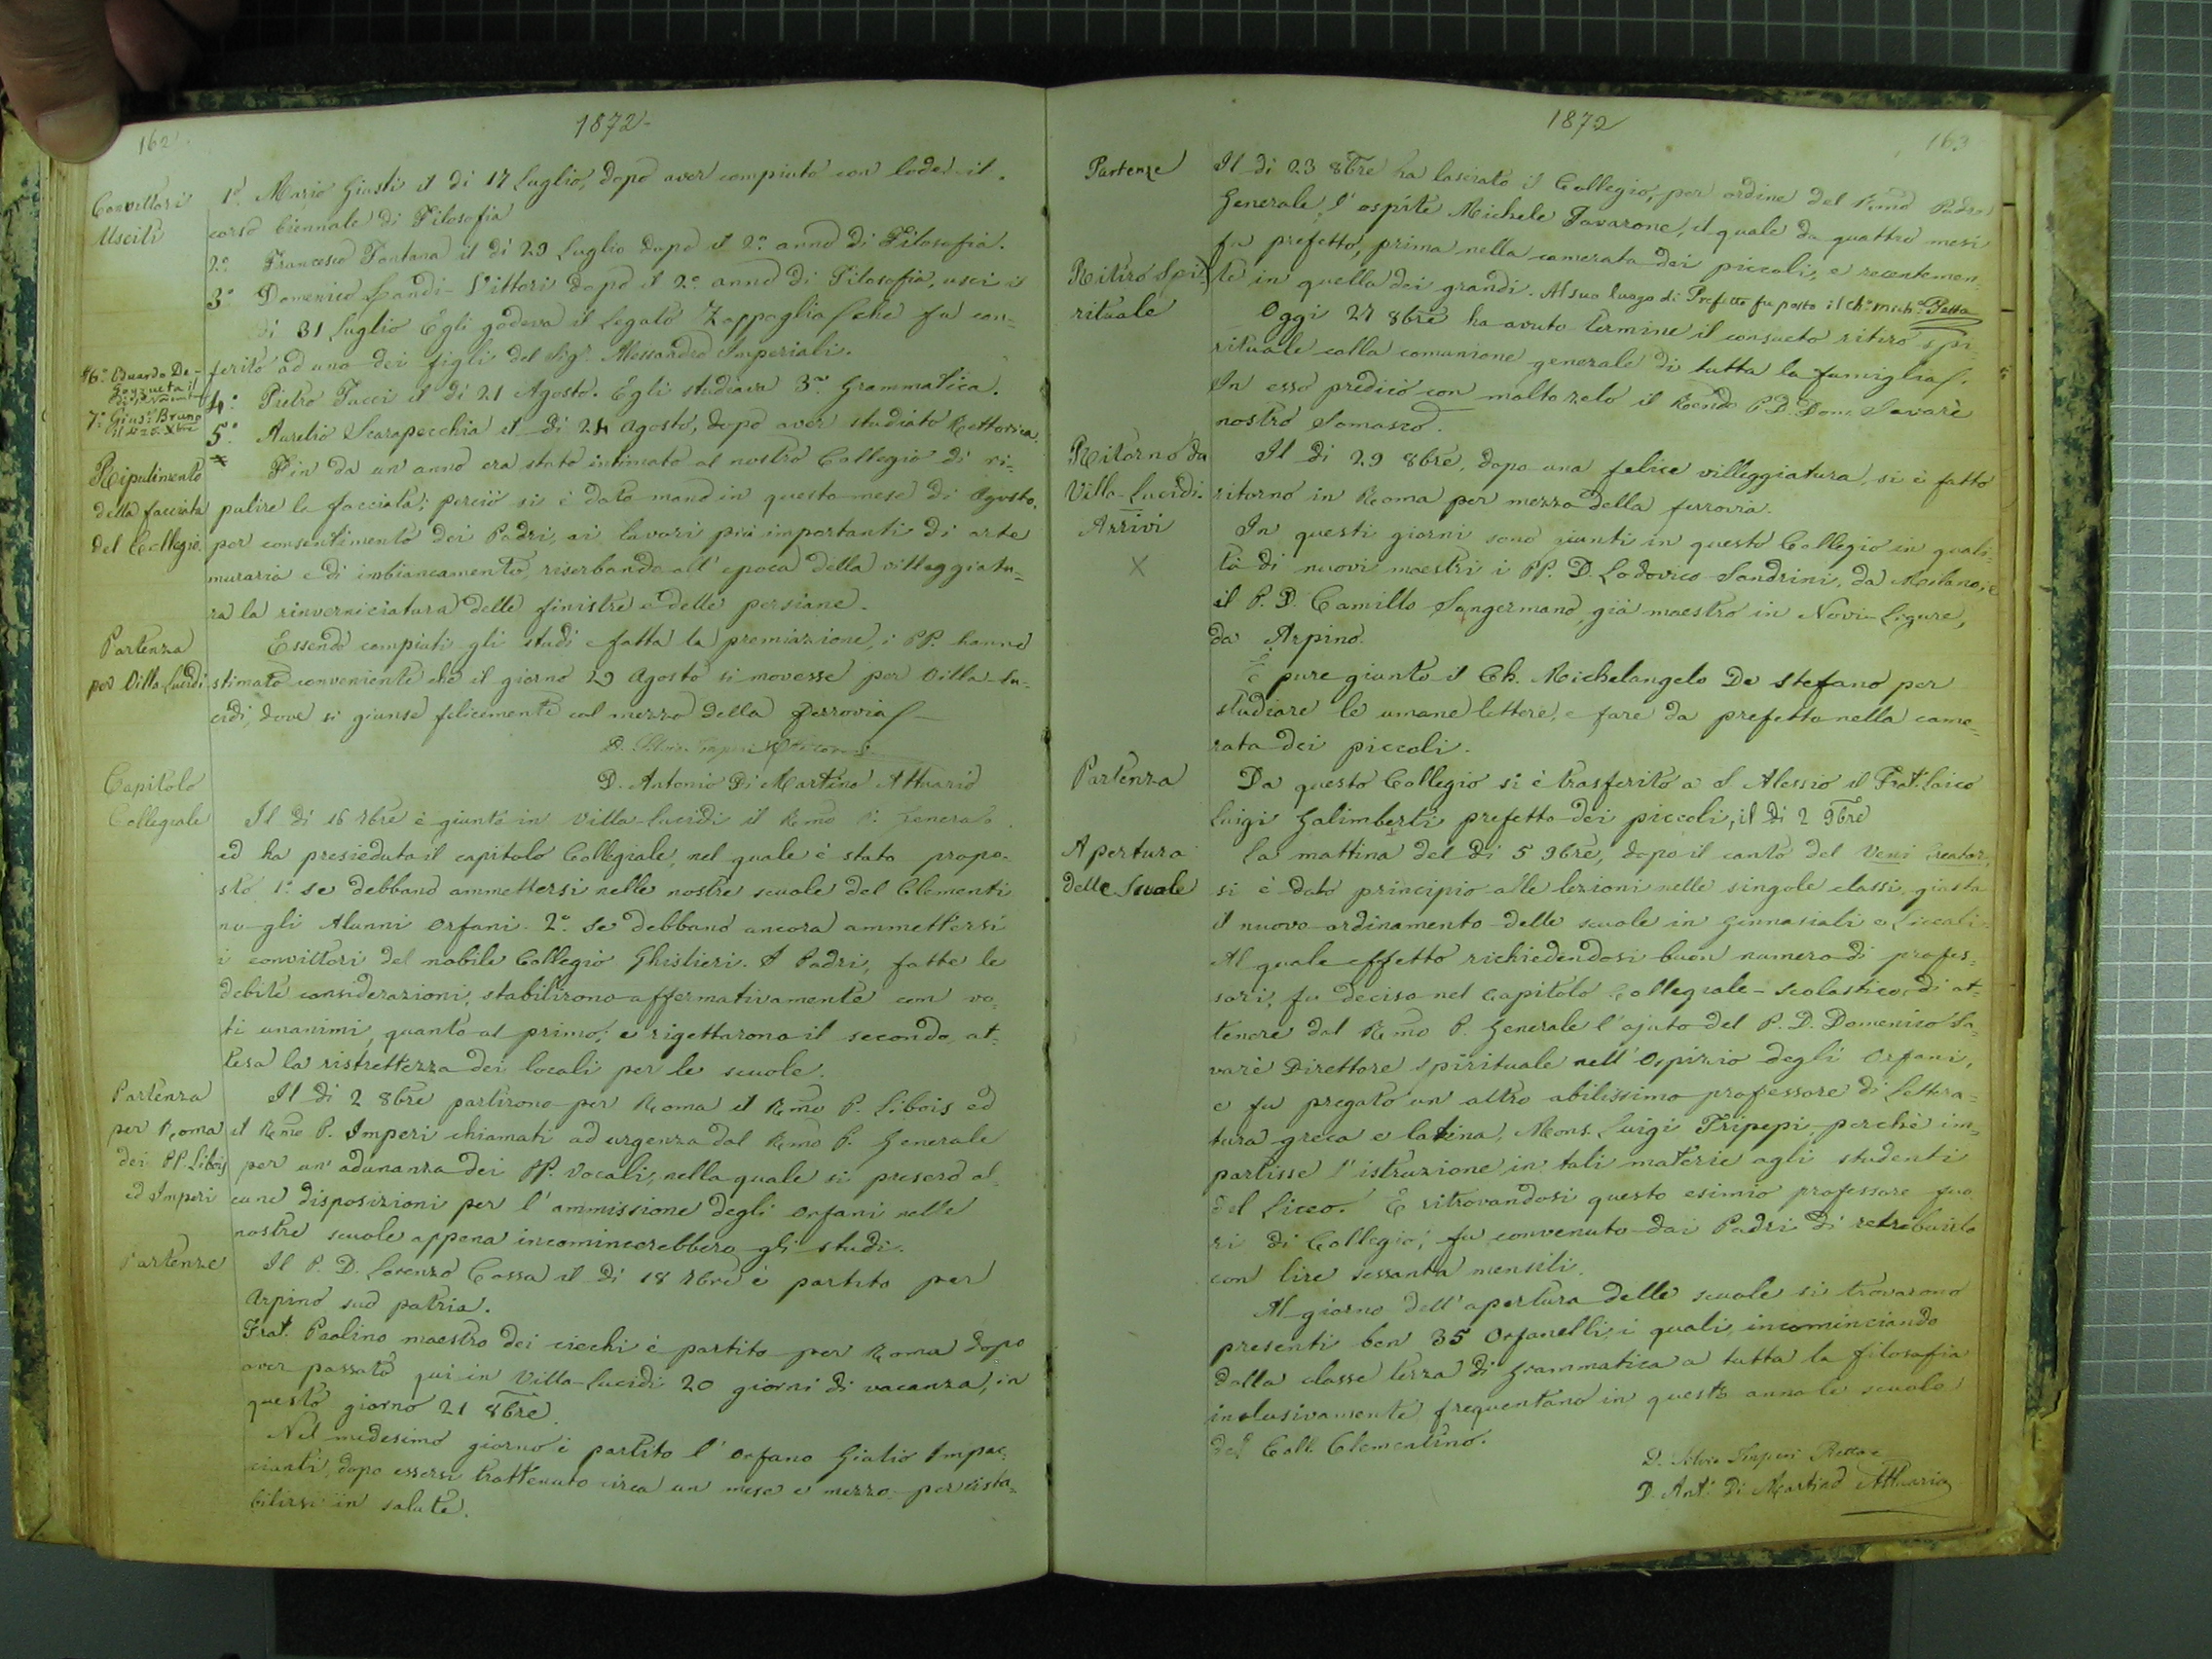 162
1872
Convittori
Usciti
1.º Mario Giusti il di 17 Luglio, dopo aver compiuto con lode il
corso biennale di Filosofia
2.º Francesco Fontana il di 29 Luglio dopo il 2.º anno di Filosofia.
3.º Domenico Landi-Vittori dopo il 2.º anno di Filosofia, uscì il
di 31 Luglio Egli godeva il Legato Zappaglia che fu con-
ferito ad uno dei figli del Sig.r Alessandro Imperiali.
6.º Eduardo De-
7.º Gius.e Bruno
4.º Pietro Tucci il di 21 Agosto. Egli studiava 3.ª Grammatica.
5.º Aurelio Scarapecchia il di 24 Agosto, dopo aver studiato Rettorica.
Ripulimento
della facciata
del Collegio
Fin da un anno era stato intimato al nostro Collegio di ri-
pulire la facciata; perciò si è dato mano in questo mese di Agosto,
per consentimento dei Padri, ai lavori più importanti di arte
muraria e di imbiancamento, riserbando all'epoca della villeggiatu=
ra la rinverniciatura delle finistre e delle persiane.
Partenza
per Villa Lucidi
Essendo compiuti gli studi e fatta la premiazione, i PP. hanno
stimato conveniente che il giorno 29 Agosto si movesse per Villa-Lu-
cidi, dove si giunse felicemente col mezzo della Ferrovia
D. Silvio Imperi
D. Antonio Di Martino Attuario
Capitolo
Collegiale
Il di 16 7bre è giunto in Villa-Lucidi il Rmo P. Generale
ed ha presieduto il capitolo Collegiale, nel quale è stato propo-
sto 1.º se debbano ammettersi nelle nostre scuole del Clementi
no gli Alunni Orfani. 2.º Se debbano ancora ammettersi
i convittori del nobile Collegio Ghislieri. I Padri, fatte le
debite considerazioni, stabilirono affermativamente con vo-
ti unanimi, quanto al primo; e rigettarono il secondo, at-
tesa la ristrettezza dei locali per le scuole.
Partenza
per Roma
dei PP. Libois
ed Imperi
Il di 2 8bre partirono per Roma il Rmo P. Libois ed
il Rmo P. Imperi chiamati ad urgenza dal Rmo P. Generale
per un'adunanza dei PP. Vocali, nella quale si presero al-
cune disposizioni per l'ammissione degli Orfani nelle
nostre scuole appena incomincerebbero gli studi.
Partenze
Il P. D. Lorenzo Cossa il di 18 7bre è partito per
Arpino sua patria.
Frat. Paolino maestro dei ciechi è partito per Roma dopo
aver passato qui in Villa-Lucidi 20 giorni di vacanza, in
questo giorno 21 8bre.
Nel medesimo giorno è partito l'Orfano Giulio Impac-
cianti, dopo essersi trattenuto circa un mese e mezzo per rista=
bilirsi in salute.
163
1872
Partenze
Il di 23 8bre ha lasciato il Collegio, per ordine del Rmo Padre
Generale, l'ospite Michele Tavarone, il quale da quattro mesi
fu prefetto, prima nella camerata dei piccoli, e recentemen-
te in quella dei grandi. Al suo luogo di Prefetto fu posto il Ch.
Ritiro Spi-
rituale
Oggi 27 8bre ha avuto termine il consueto ritiro spi-
rituale colla comunione generale di tutta la famiglia.
In esso predicò con molto zelo il Rendo P. D. Dom. Savarè
nostro Somasco.
Ritorno da
Villa-Lucidi.
Il di 29 8bre, dopo una felice villeggiatura, si è fatto
ritorno in Roma per mezzo della ferrovia.
Arrivi
X
In questi giorni sono giunti in questo Collegio in quali-
tà di nuovi maestri i PP. D. Lodovico Sandrini, da Milano, e
il P. D. Camillo Sangermano, già maestro in Novi-Ligure,
da Arpino.
È pure giunto il Ch. Michelangelo De Stefano per
studiare le umane lettere, e fare da prefetto nella came-
rata dei piccoli.
Partenza
Da questo Collegio si è trasferito a S. Alessio il Frat. Laico
Luigi Galimberti prefetto dei piccoli, il di 2 9bre
Apertura
delle Scuole
La mattina del di 5 9bre, dopo il canto del Veni Creator,
si è dato principio alle lezioni nelle singole classi, giusta
il nuovo ordinamento delle scuole in Ginnasiali e Liceali.
Al quale effetto richiedendosi buon numero di profes=
sori, fu deciso nel Capitolo Collegiale-Scolastico, di ot-
tenere dal Rmo P. Generale l'ajuto del P. D. Domenico Sa-
varè Direttore spirituale nell'Ospizio degli Orfani,
e fu pregato un altro abilissimo professore di Lettera=
tura greca e latina, Mons. Luigi Tripepi, perchè im-
partisse l'istruzione in tali materie agli studenti
del Liceo. E ritrovandosi questo esimio professore fuo
ri di Collegio, fu convenuto dai Padri di retribuirlo
con lire sessanta mensili.
Al giorno dell'apertura delle scuole si trovarono
presenti ben 35 Orfanelli, i quali, incominciando
dalla classe terza di Grammatica a tutta la filosofia
inclusivamente frequentano in questo anno le scuole
del Coll. Clementino.
D. Silvio Imperi Rettore
D. Ant.º Di Martino Attuario